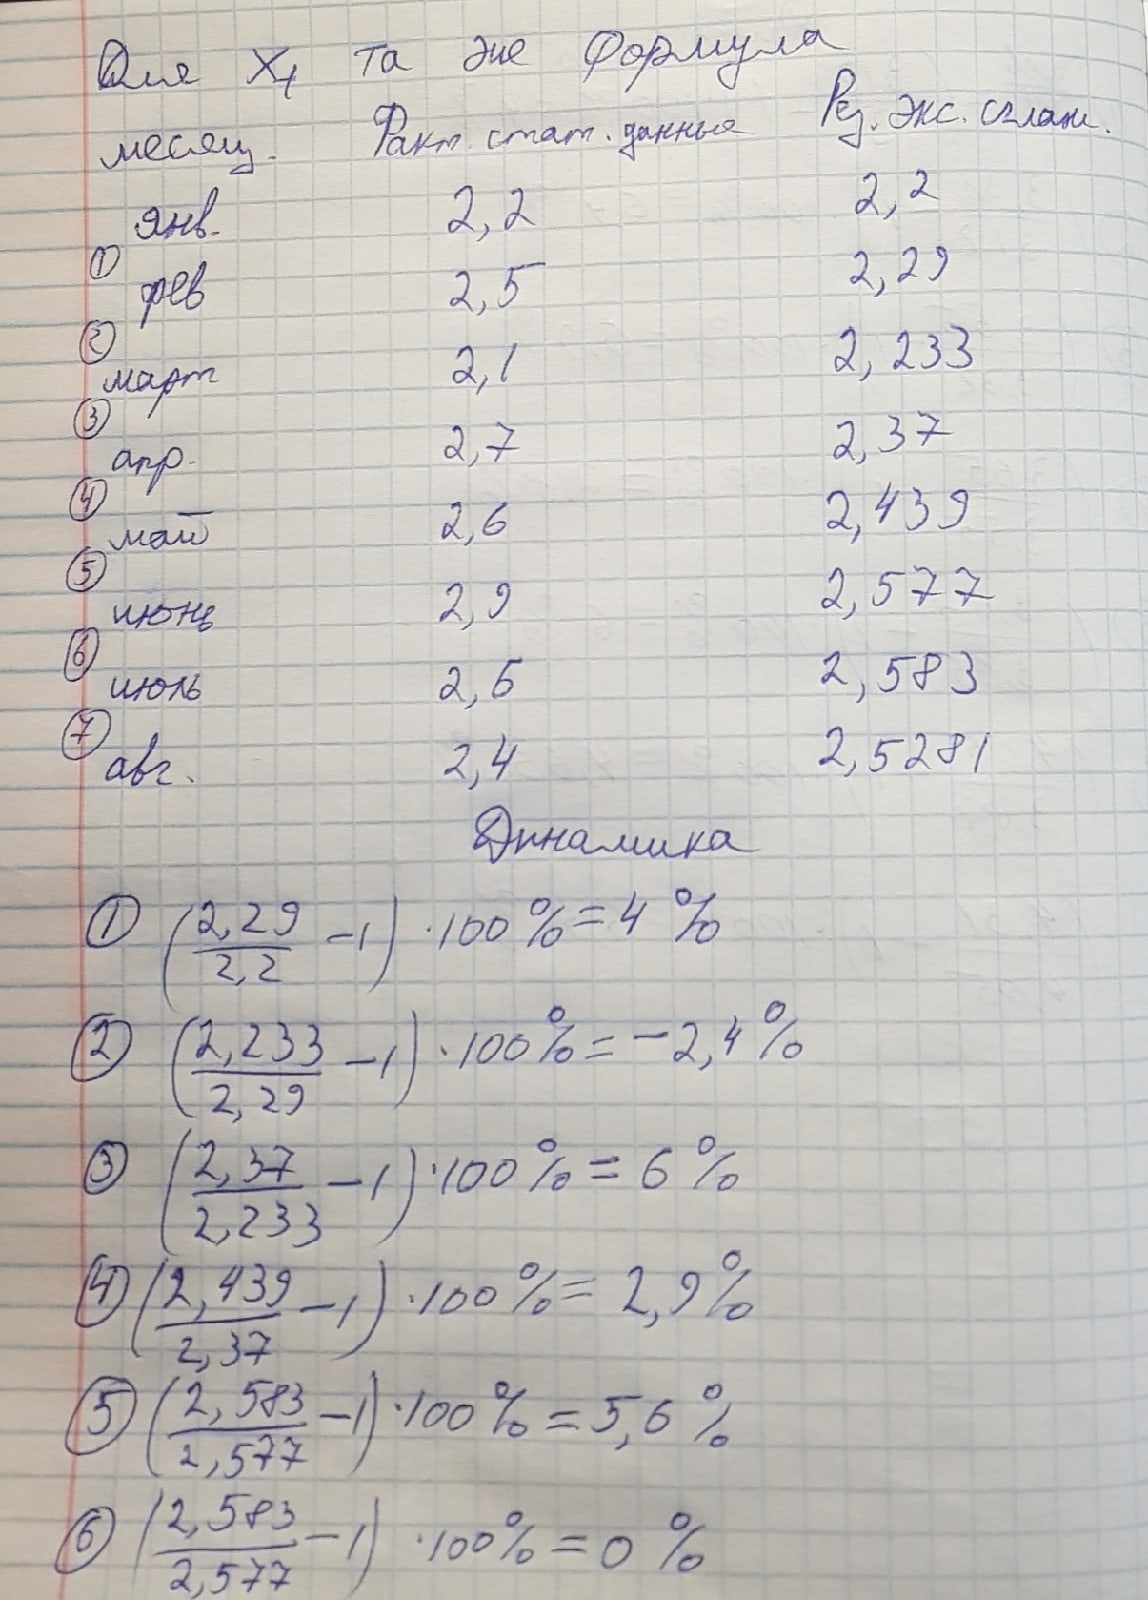 Для X₁ та же формула
месяц. Факт. стат. данные Рез. экс. сглаж.
янв. 2,2 2,2
① фев 2,5 2,29
② март 2,1 2,233
③ апр. 2,7 2,37
④ май 2,6 2,439
⑤ июнь 2,9 2,577
⑥ июль 2,6 2,583
⑦ авг. 2,4 2,5281
Динамика
① (2,29/2,2 - 1) · 100% = 4%
② (2,233/2,29 - 1) · 100% = -2,4%
③ (2,37/2,233 - 1) · 100% = 6%
④ (2,439/2,37 - 1) · 100% = 2,9%
⑤ (2,583/2,577 - 1) · 100% = 5,6%
⑥ (2,583/2,577 - 1) · 100% = 0%